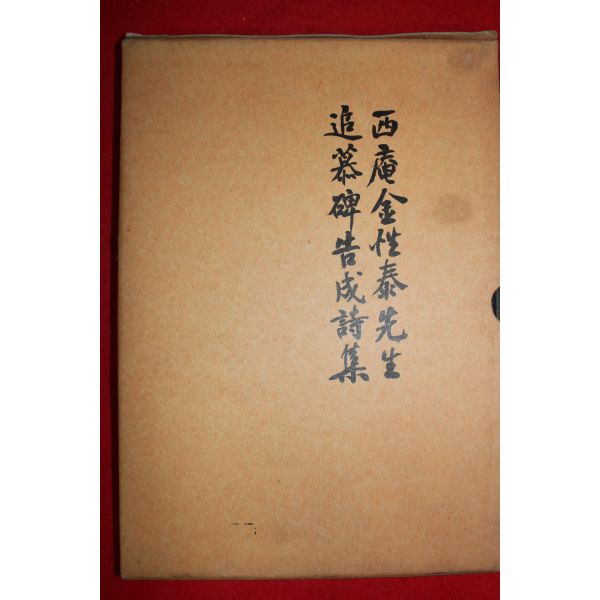 西庵金性泰先生
追慕碑告成詩集